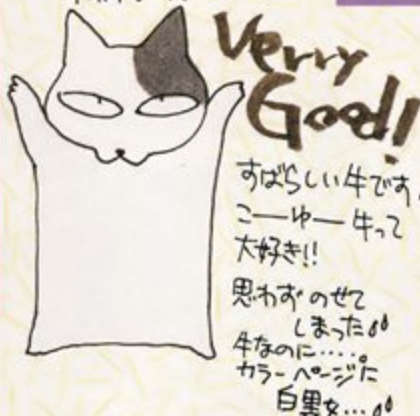 Verry
Good!
すばらしい牛です。
こーゆー牛って
大好き!!
思わずのせて
しまった
牛なのに……。
カラーページに
白黒を…